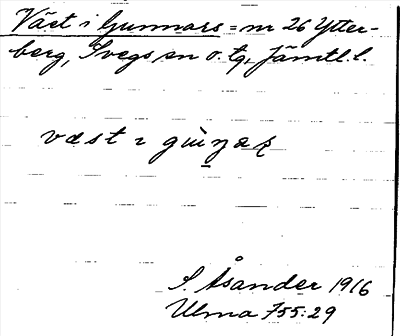 Väst i Gunnars = nr 26 Ytter-
berg, Svegs sn o. tg, Jämtl. l.
væst ı
S. Åsander 1916
Ulma 755:29